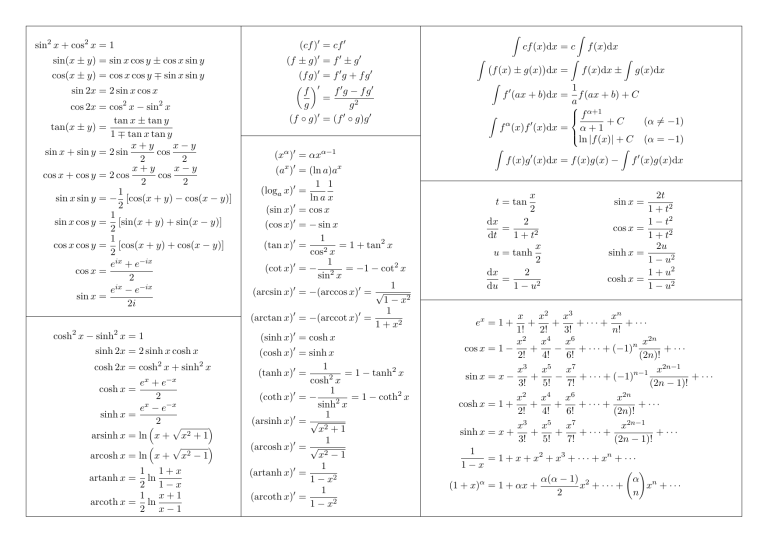 sin² x + cos² x = 1
sin(x ± y) = sin x cos y ± cos x sin y
cos(x ± y) = cos x cos y ∓ sin x sin y
sin 2x = 2 sin x cos x
cos 2x = cos² x − sin² x
tan(x ± y) = (tan x ± tan y)/(1 ∓ tan x tan y)
sin x + sin y = 2 sin (x + y)/2 cos (x − y)/2
cos x + cos y = 2 cos (x + y)/2 cos (x − y)/2
sin x sin y = −1/2 [cos(x + y) − cos(x − y)]
sin x cos y = 1/2 [sin(x + y) + sin(x − y)]
cos x cos y = 1/2 [cos(x + y) + cos(x − y)]
cos x = (e^{ix} + e^{−ix})/2
sin x = (e^{ix} − e^{−ix})/2i
cosh² x − sinh² x = 1
sinh 2x = 2 sinh x cosh x
cosh 2x = cosh² x + sinh² x
cosh x = (e^x + e^{−x})/2
sinh x = (e^x − e^{−x})/2
arsinh x = ln (x + √(x² + 1))
arcosh x = ln (x + √(x² − 1))
artanh x = 1/2 ln (1 + x)/(1 − x)
arcoth x = 1/2 ln (x + 1)/(x − 1)
(cf)′ = cf′
(f ± g)′ = f′ ± g′
(fg)′ = f′g + fg′
(f/g)′ = (f′g − fg′)/g²
(f ∘ g)′ = (f′ ∘ g)g′
(x^α)′ = αx^{α−1}
(a^x)′ = (ln a)a^x
(log_a x)′ = 1/(ln a) 1/x
(sin x)′ = cos x
(cos x)′ = − sin x
(tan x)′ = 1/(cos² x) = 1 + tan² x
(cot x)′ = −1/(sin² x) = −1 − cot² x
(arcsin x)′ = −(arccos x)′ = 1/√(1 − x²)
(arctan x)′ = −(arccot x)′ = 1/(1 + x²)
(sinh x)′ = cosh x
(cosh x)′ = sinh x
(tanh x)′ = 1/(cosh² x) = 1 − tanh² x
(coth x)′ = −1/(sinh² x) = 1 − coth² x
(arsinh x)′ = 1/√(x² + 1)
(arcosh x)′ = 1/√(x² − 1)
(artanh x)′ = 1/(1 − x²)
(arcoth x)′ = 1/(1 − x²)
∫ cf(x)dx = c ∫ f(x)dx
∫ (f(x) ± g(x))dx = ∫ f(x)dx ± ∫ g(x)dx
∫ f′(ax + b)dx = 1/a f(ax + b) + C
∫ f^α(x)f′(x)dx = { f^{α+1}/(α + 1) + C (α ≠ −1)
ln |f(x)| + C (α = −1)
∫ f(x)g′(x)dx = f(x)g(x) − ∫ f′(x)g(x)dx
t = tan x/2 sin x = 2t/(1 + t²)
dx/dt = 2/(1 + t²) cos x = (1 − t²)/(1 + t²)
u = tanh x/2 sinh x = 2u/(1 − u²)
dx/du = 2/(1 − u²) cosh x = (1 + u²)/(1 − u²)
e^x = 1 + x/1! + x²/2! + x³/3! + ⋯ + x^n/n! + ⋯
cos x = 1 − x²/2! + x⁴/4! − x⁶/6! + ⋯ + (−1)^n x^{2n}/(2n)! + ⋯
sin x = x − x³/3! + x⁵/5! − x⁷/7! + ⋯ + (−1)^{n−1} x^{2n−1}/(2n − 1)! + ⋯
cosh x = 1 + x²/2! + x⁴/4! + x⁶/6! + ⋯ + x^{2n}/(2n)! + ⋯
sinh x = x + x³/3! + x⁵/5! + x⁷/7! + ⋯ + x^{2n−1}/(2n − 1)! + ⋯
1/(1 − x) = 1 + x + x² + x³ + ⋯ + x^n + ⋯
(1 + x)^α = 1 + αx + α(α − 1)/2 x² + ⋯ + (α n) x^n + ⋯